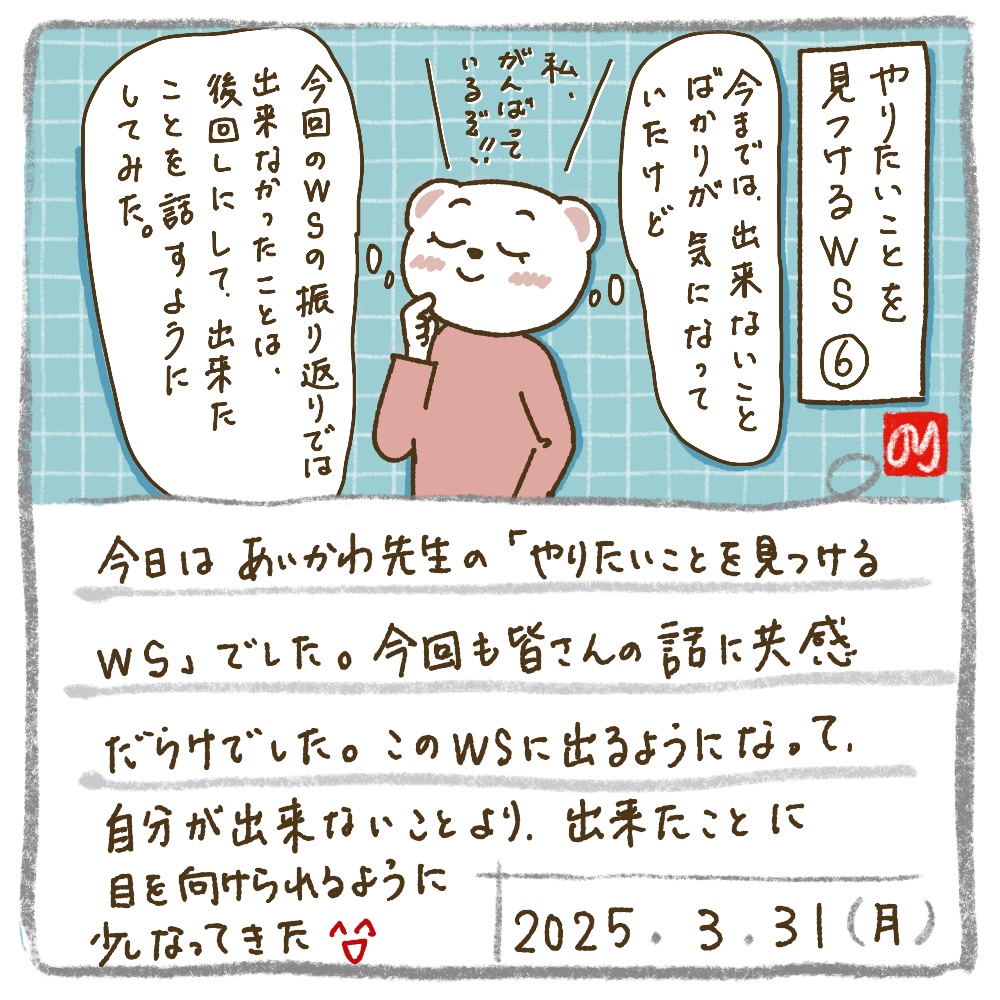 やりたいことを
見つけるWS
⑥
今までは、出来ないこと
ばかりが気になって
いたけど
私、
がんばって
いるぞ!!
今回のWSの振り返りでは
出来なかったことは、
後回しにして、出来た
ことを話すように
してみた。
今日は あいかわ先生の「やりたいことを見つける
WS」でした。今回も皆さんの話に共感
だらけでした。このWSに出るようになって、
自分が出来ないことより、出来たことに
目を向けられるように
少しなってきた
2025.3.31(月)